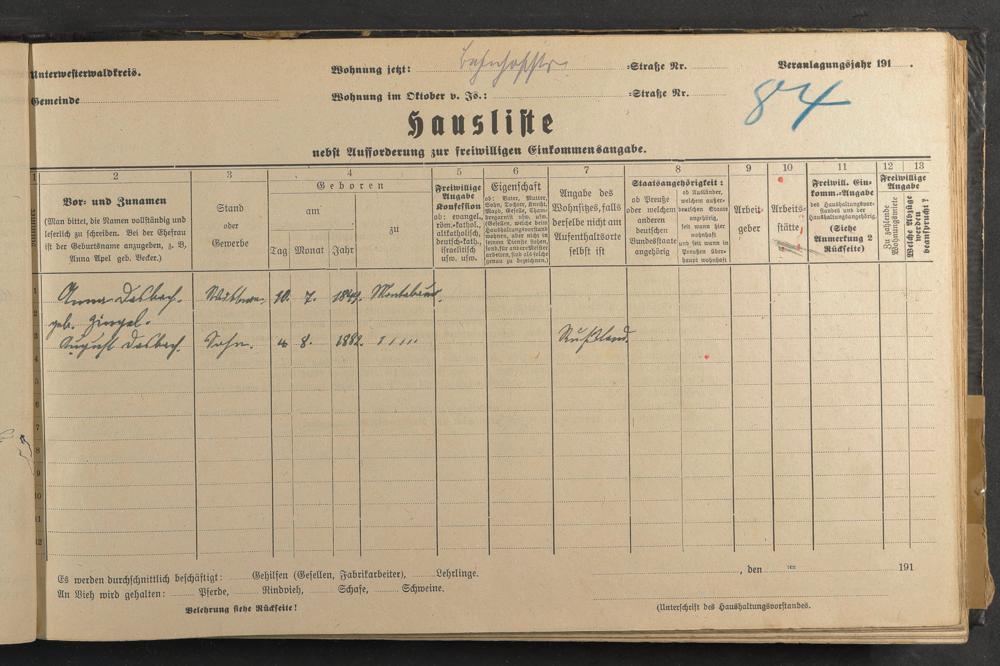 Unterwesterwaldkreis.
Wohnung jetzt: Bahnhofstr. =Straße Nr.
Veranlagungsjahr 191 .
Gemeinde
Wohnung im Oktober v. Js.: =Straße Nr.
84
Hausliste
nebst Aufforderung zur freiwilligen Einkommensangabe.
1 2 3 4 5 6 7 8 9 10 11 12 13
Nummer
Vor- und Zunamen
(Man bittet, die Namen vollständig und
leserlich zu schreiben. Bei der Ehefrau
ist der Geburtsname anzugeben, z. B.
Anna Apel geb. Becker.)
Stand
oder
Gewerbe
Geboren
am
zu
Tag Monat Jahr
Freiwillige
Angabe
Konfession
ob: evangel.,
röm.-kathol.,
altkatholisch,
deutsch-kath.,
israelitisch
usw. usw.
Eigenschaft
ob: Vater, Mutter,
Sohn, Tochter, Knecht,
Magd, Geselle,
Angabe des
Wohnsitzes, falls
derselbe nicht am
Aufenthaltsorte
selbst ist
Staatsangehörigkeit:
ob Preuße
oder welchem
anderen
deutschen
Bundesstaate
angehörig
ob Ausländer,
welchem außer-
deutschen Staate
angehörig,
seit wann hier
wohnhaft
und seit wann in
Preußen über-
haupt wohnhaft
Arbeit-
geber
Arbeits-
stätte
Freiwill. Ein-
komm.-Angabe
des Haushaltungsvor-
standes und der
Haushaltungsangehörig.
(Siehe
Anmerkung 2
Rückseite)
Freiwillige
Angabe
Zu zahlende
Wohnungsmiete
Welche Abzüge
werden
beansprucht?
1 Anna Dasbach. Wittwe. 10. 7. 1849. Montabaur.
2 geb. Zingel.
3 August Dasbach. Sohn. 4 8. 1882. " " " Rußland.
4
5
6
7
8
9
10
11
12
Es werden durchschnittlich beschäftigt: Gehilfen (Gesellen, Fabrikarbeiter), Lehrlinge.
An Vieh wird gehalten: Pferde, Rindvieh, Schafe, Schweine.
, den ten 191
Belehrung siehe Rückseite!
(Unterschrift des Haushaltungsvorstandes.